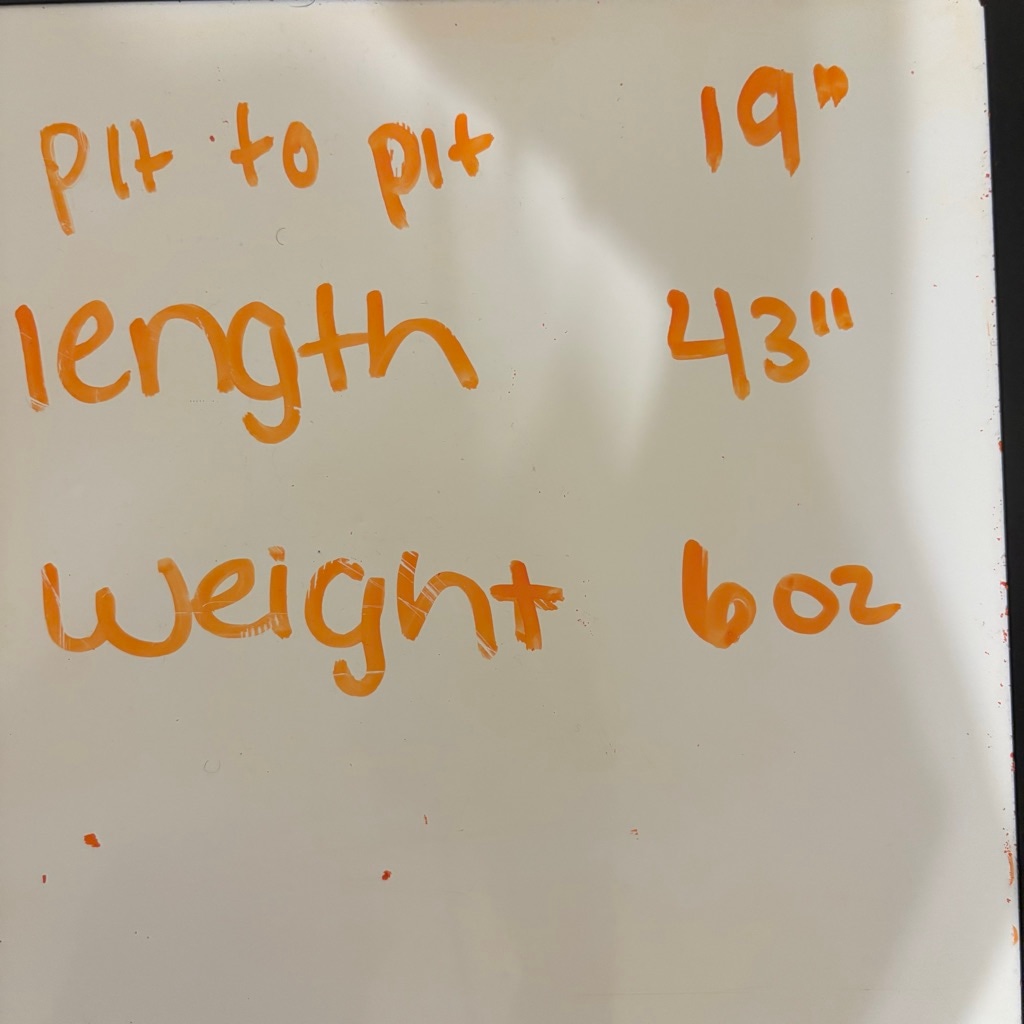 pit to pit 19"
length 43"
weight 6oz